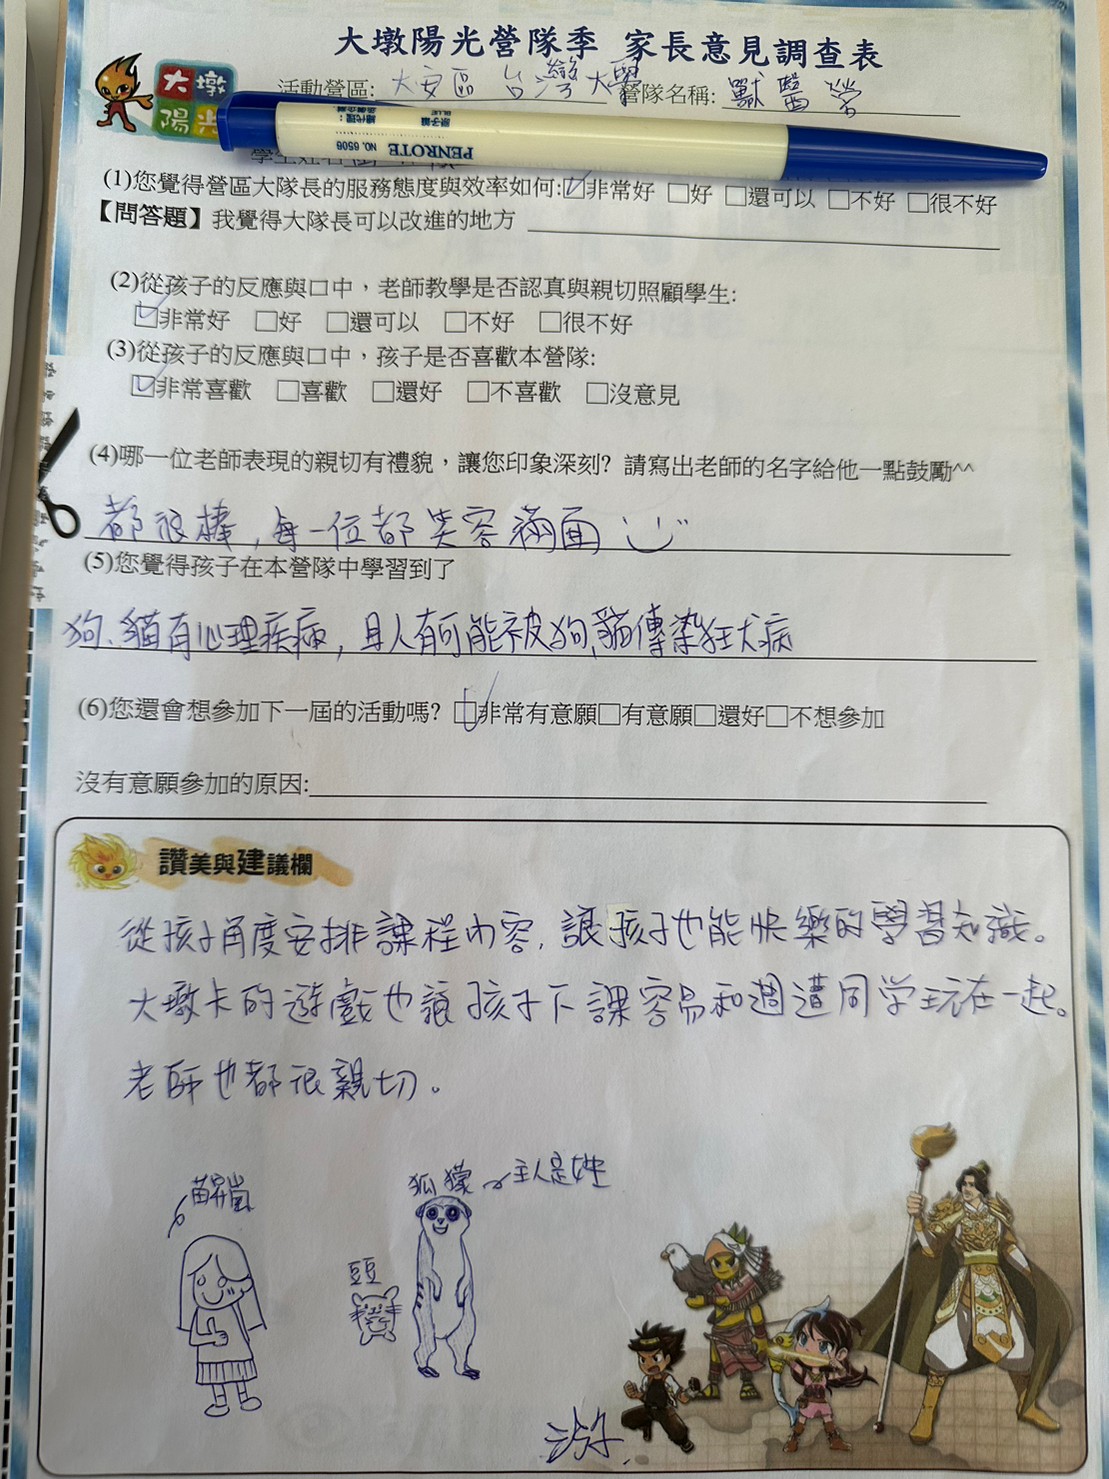 大墩陽光營隊季 家長意見調查表
大墩
陽光
活動營區: 大安區 台灣大學 營隊名稱: 獸醫營
PENROTE
NO. 6506
(1)您覺得營區大隊長的服務態度與效率如何:☑非常好 □好 □還可以 □不好 □很不好
【問答題】我覺得大隊長可以改進的地方
(2)從孩子的反應與口中，老師教學是否認真與親切照顧學生:
☑非常好 □好 □還可以 □不好 □很不好
(3)從孩子的反應與口中，孩子是否喜歡本營隊:
☑非常喜歡 □喜歡 □還好 □不喜歡 □沒意見
(4)哪一位老師表現的親切有禮貌，讓您印象深刻? 請寫出老師的名字給他一點鼓勵^^
都很棒，每一位都笑容滿面
(5)您覺得孩子在本營隊中學習到了
狗、貓有心理疾病，且人有可能被狗、貓傳染狂犬病
(6)您還會想參加下一屆的活動嗎? ☑非常有意願□有意願□還好□不想參加
沒有意願參加的原因:
讚美與建議欄
從孩子角度安排課程內容，讓孩子也能快樂的學習知識。
大墩卡的遊戲也讓孩子下課容易和週遭同学玩在一起。
老師也都很親切。
狐獴 主人是
豆豆